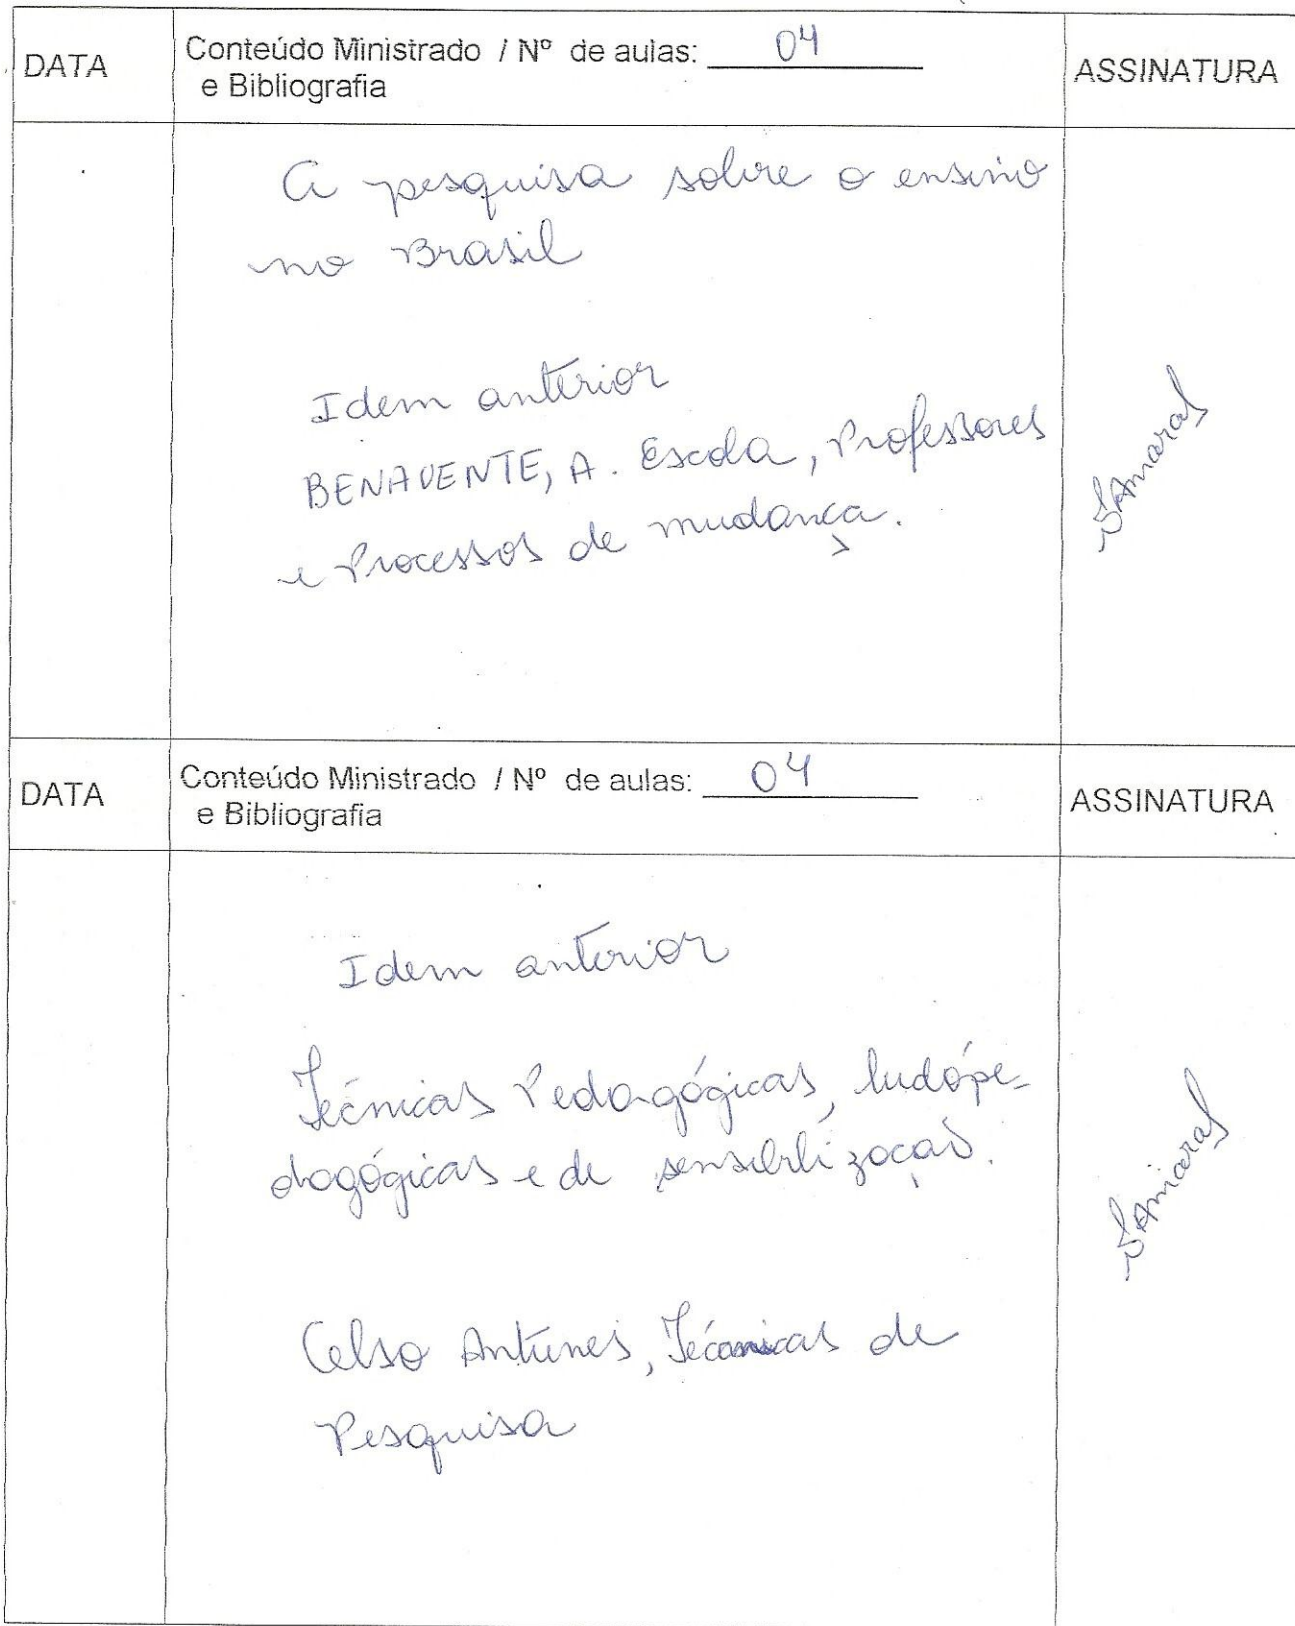 DATA
Conteúdo Ministrado / Nº de aulas: 04
e Bibliografia
ASSINATURA
A pesquisa sobre o ensino
no Brasil
Idem anterior
BENAVENTE, A. Escola, Professores
e Processos de mudança.
SAmaral
DATA
Conteúdo Ministrado / Nº de aulas: 04
e Bibliografia
ASSINATURA
Idem anterior
Técnicas Pedagógicas, ludópe-
dagógicas e de sensibilização.
SAmaral
Celso Antunes, Técnicas de
Pesquisa